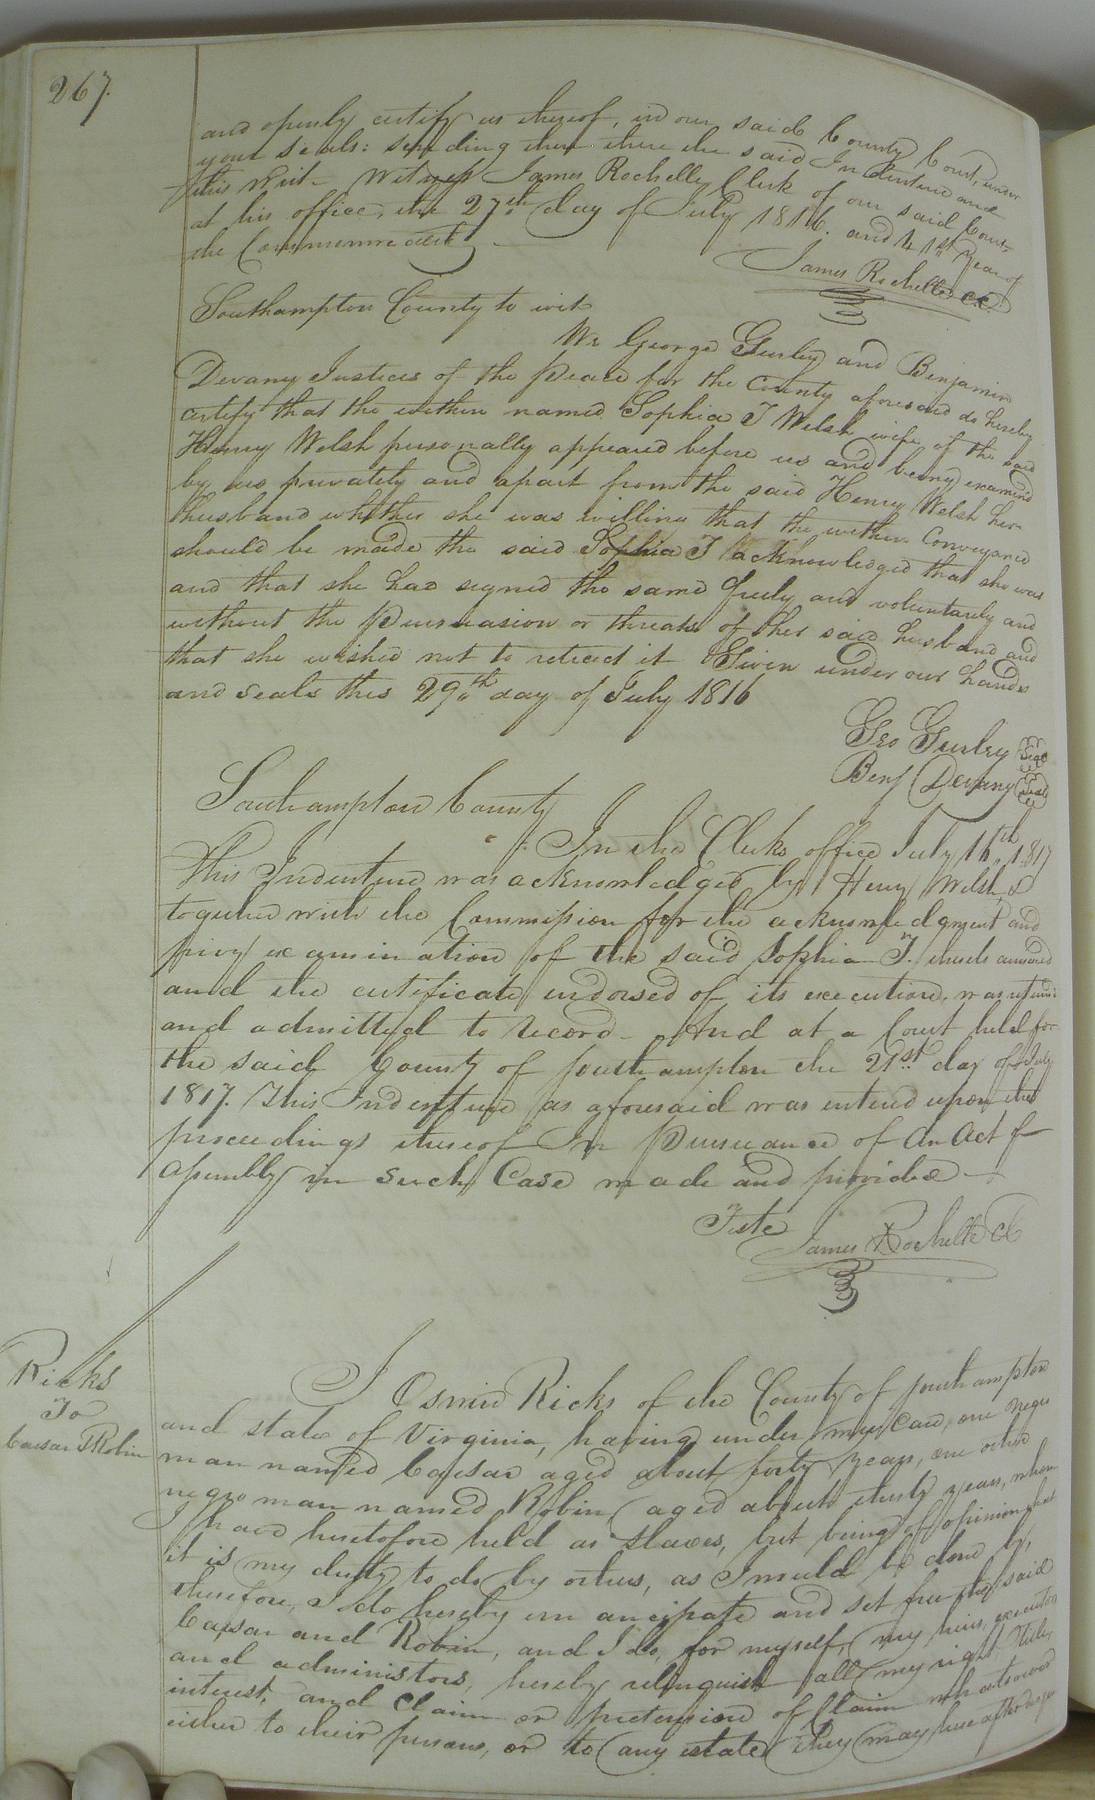 267.
and openly certify us thereof, in our said County Court, under
your seals: sending then there the said Indenture and
this writ. Witness James Rochelle, Clerk of our said Court
at his office, the 27th day of July 1816. and 41st year of
the Commonwealth
James Rochelle CC
Southampton County to wit
We George Gurley and Benjamin
Devany Justices of the Peace for the County aforesaid do hereby
certify that the within named Sophia T Welsh wife of the said
Henry Welsh personally appeared before us and being examined
by us privately and apart from the said Henry Welsh her
husband whether she was willing that the within Conveyance
should be made the said Sophia T acknowledged that she was
and that she had signed the same freely and voluntarily and
without the Persuasion or threats of her said husband and
that she wished not to retract it Given under our hands
and seals this 29th day of July 1816
Geo Gurley Seal
Benj Devany Seal
Southampton County
In the Clerks office July 16th 1817
This Indenture was acknowledged by Henry Welsh, &
together with the Commission for the acknowledgment and
privy examination of the said Sophia T. thereto annexed
and the certificate endorsed of its execution, was returned
and admitted to record. And at a Court held for
the said County of Southampton the 21st day of July
1817. This Indenture as aforesaid was entered upon the
proceedings thereof In Pursuance of An Act of
Assembly in such Case made and provided
Teste
James Rochelle CC
Ricks
To
Caesar & Robin
I Oswin Ricks of the County of Southampton
and state of Virginia, having under my Care, one negro
man named Caesar aged about forty years, one other
negro man named Robin aged about thirty years, whom
I have heretofore held as slaves, but being of opinion that
it is my duty to do by others, as I would be done by,
therefore, I do hereby emancipate and set free the said
Caesar and Robin, and I do, for myself, my heirs, executors
and administors, hereby relinquish all my right, Title,
interest, and Claim or pretension of Claim whatsoever
either to their persons, or to any estate they may hereafter